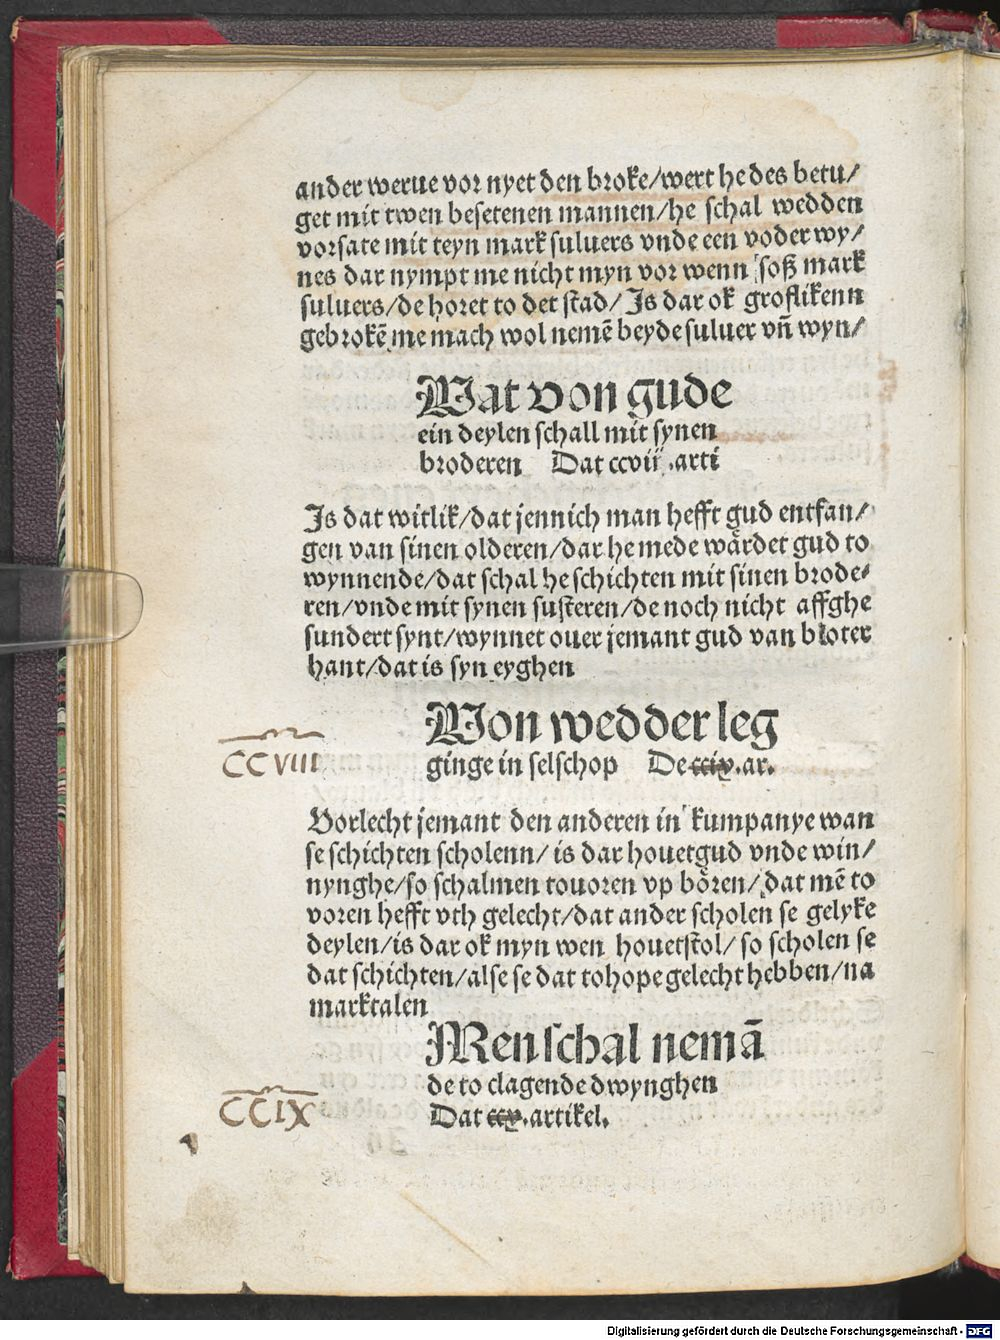 ander werue vor nyet den broke/wert he des betu/
get mit twen besetenen mannen/he schal wedden
vorsate mit teyn mark suluers vnde een voder wy/
nes dar nympt me nicht myn vor wenn soß mark
suluers/de horet to det stad/ Is dar ok groflikenn
gebrokē me mach wol nemē beyde suluer vn̄ wyn/
Wat von gude
ein deylen schall mit synen
broderen Dat ccvii .arti
Is dat witlik/dat jennich man hefft gud entfan/
gen van sinen olderen/dar he mede wārdet gud to
wynnende/dat schal he schichten mit sinen brode/
ren/vnde mit synen susteren/de noch nicht affghe
sundert synt/wynnet ouer jemant gud van bloter
hant/dat is syn eyghen
Won wedder leg
ginge in selschop De ccix .ar.
CCVIII
Vorlecht jemant den anderen in kumpanye wan
se schichten scholenn/ is dar houetgud vnde win/
nynghe/so schalmen touoren vp bören/dat mē to
voren hefft vth gelecht/dat ander scholen se gelyke
deylen/is dar ok myn wen houetstol/ so scholen se
dat schichten/alse se dat tohope gelecht hebben/na
marktalen
Men schal nemā
de to clagende dwynghen
Dat ccx .artikel.
CCIX
Digitalisierung gefördert durch die Deutsche Forschungsgemeinschaft - DFG